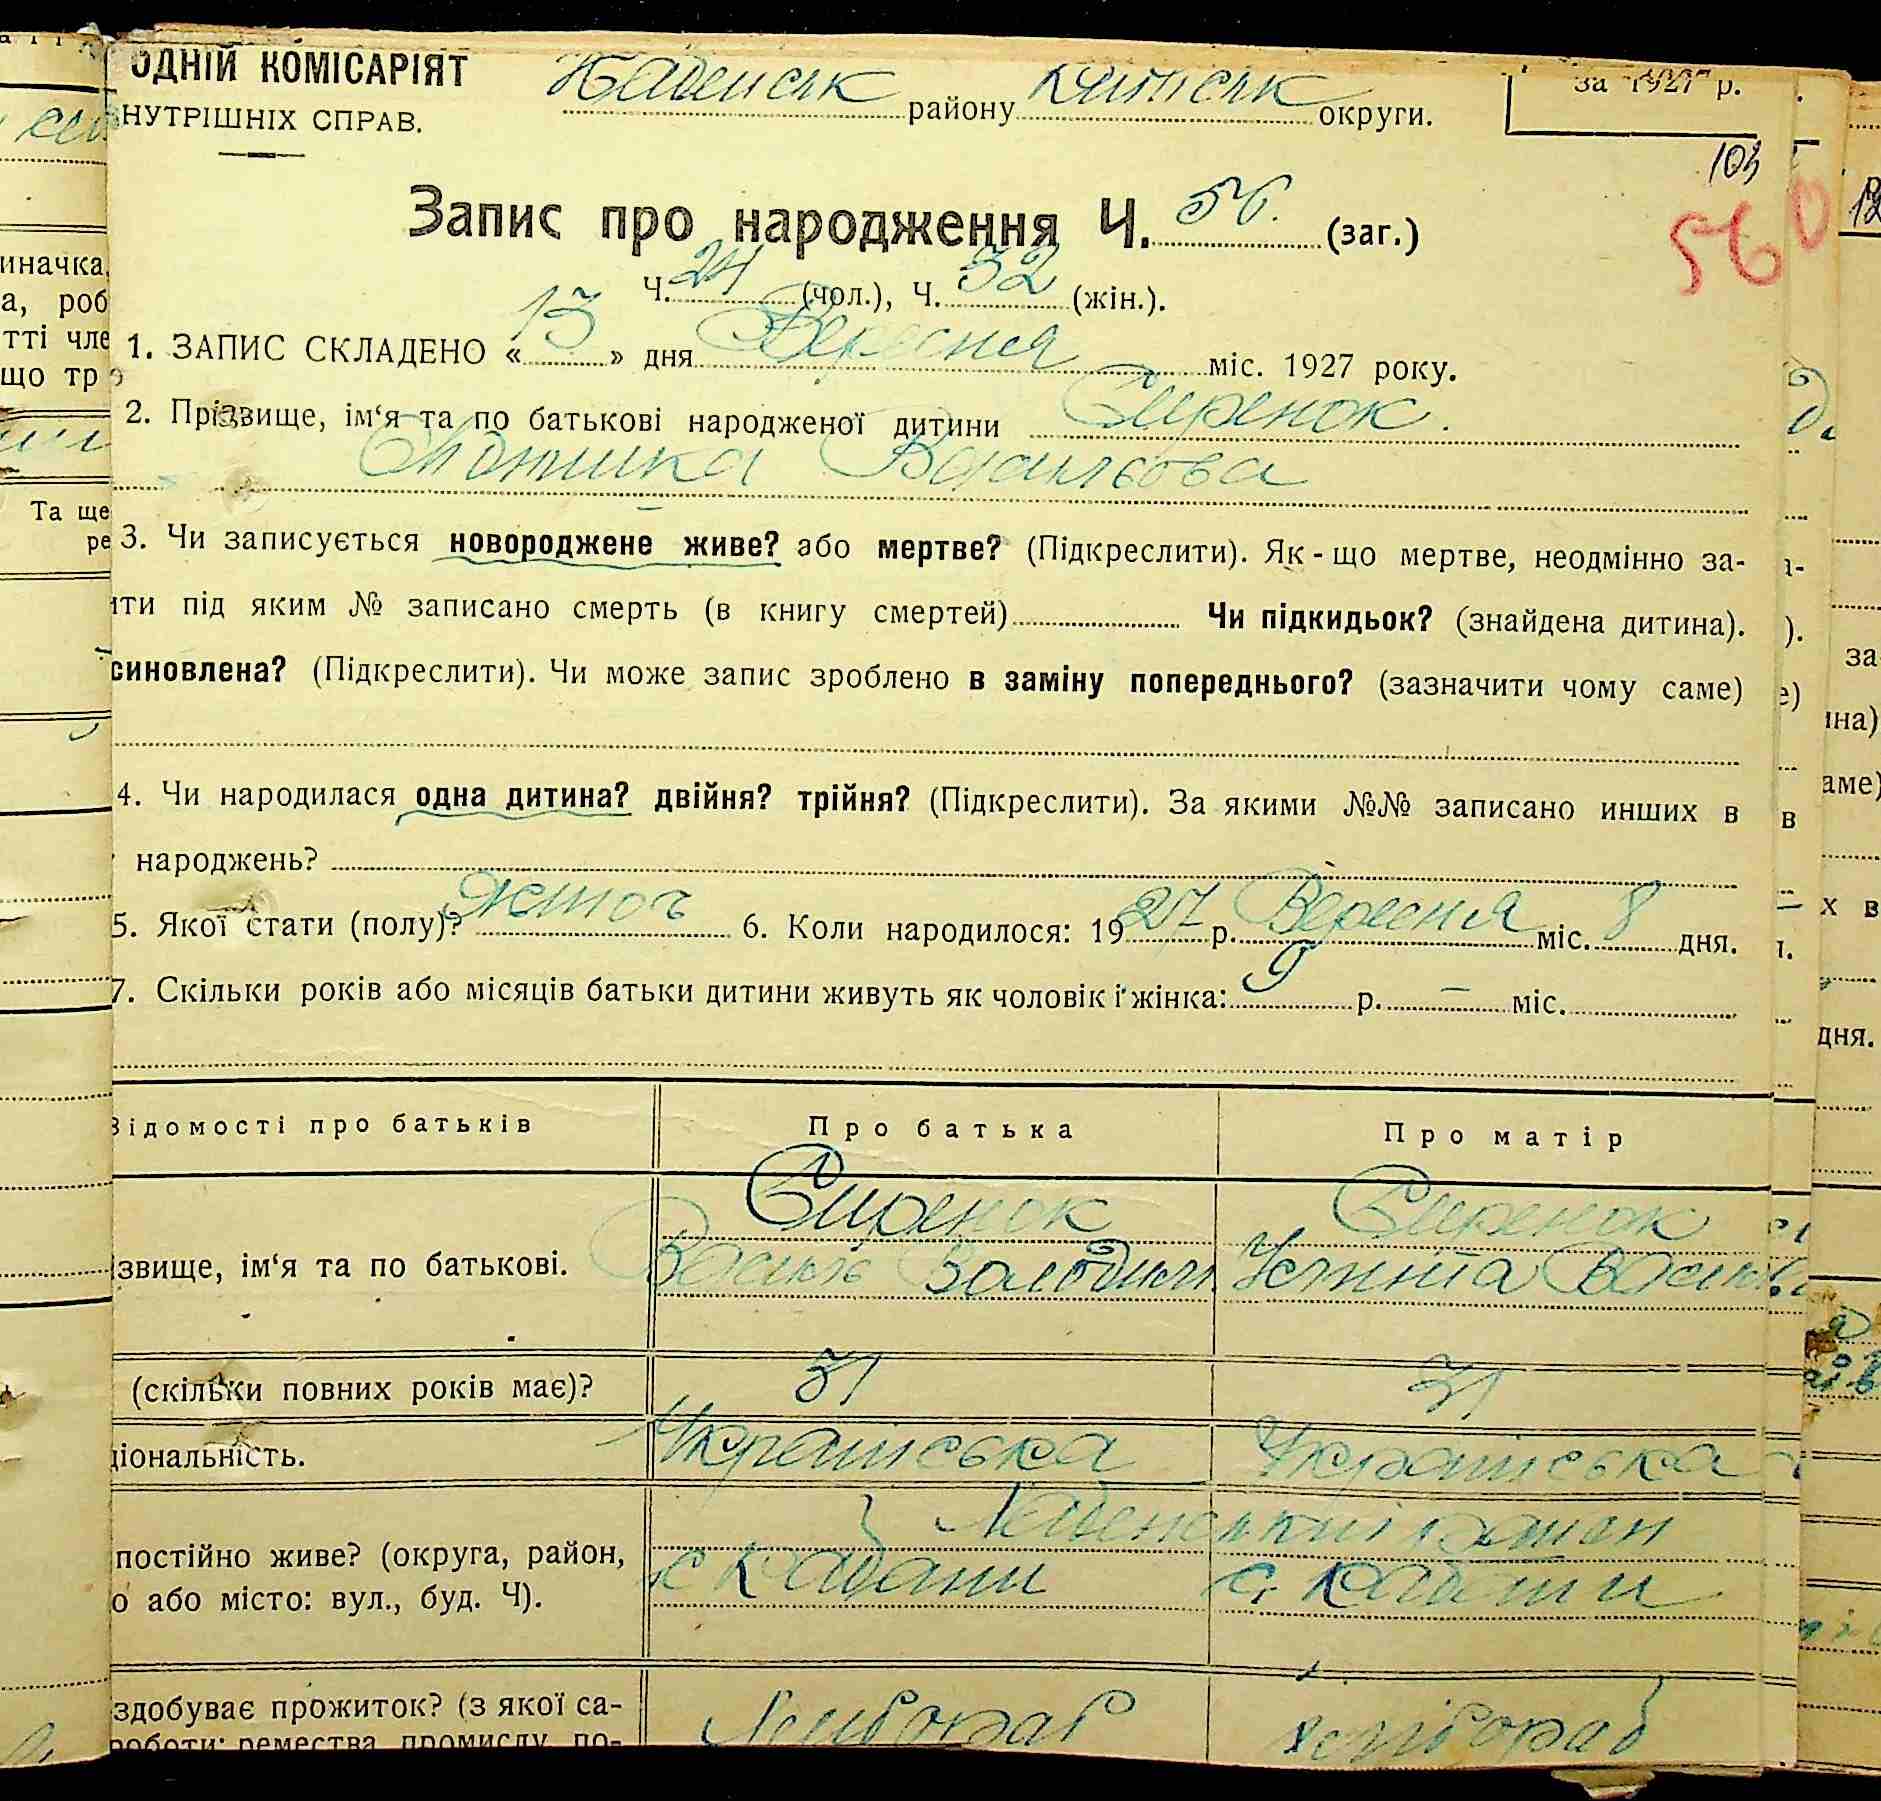 ОДНІЙ КОМІСАРІЯТ
НУТРІШНІХ СПРАВ.
району округи.
за 1927 р.
103
Запис про народження Ч. 56. (заг.)
560
Ч. 24 (чол.), Ч. 32 (жін.).
1. ЗАПИС СКЛАДЕНО « 13 » дня Вересня міс. 1927 року.
2. Прізвище, ім‘я та по батькові народженої дитини Сиренок.
Васильова
3. Чи записується новороджене живе? або мертве? (Підкреслити). Як-що мертве, неодмінно за-
ти під яким № записано смерть (в книгу смертей) Чи підкидьок? (знайдена дитина).
синовлена? (Підкреслити). Чи може запис зроблено в заміну попереднього? (зазначити чому саме)
4. Чи народилася одна дитина? двійня? трійня? (Підкреслити). За якими №№ записано инших в
народжень?
5. Якої стати (полу)? жіноч 6. Коли народилося: 1927 р. Вересня міс. 8 дня.
7. Скільки років або місяців батьки дитини живуть як чоловік і жінка: 9 р. – міс.
Відомості про батьків Про батька Про матір
Сиренок Сиренок
звище, ім‘я та по батькові. Василь Володим Устина Васил
(скільки повних років має)? 31 31
ціональність. Українська Українська
район
постійно живе? (округа, район, с Кабани с. Кабани
о або місто: вул., буд. Ч).
здобуває прожиток? (з якої са- Хлібороб хлібороб
роботи: ремества, промислу, по-